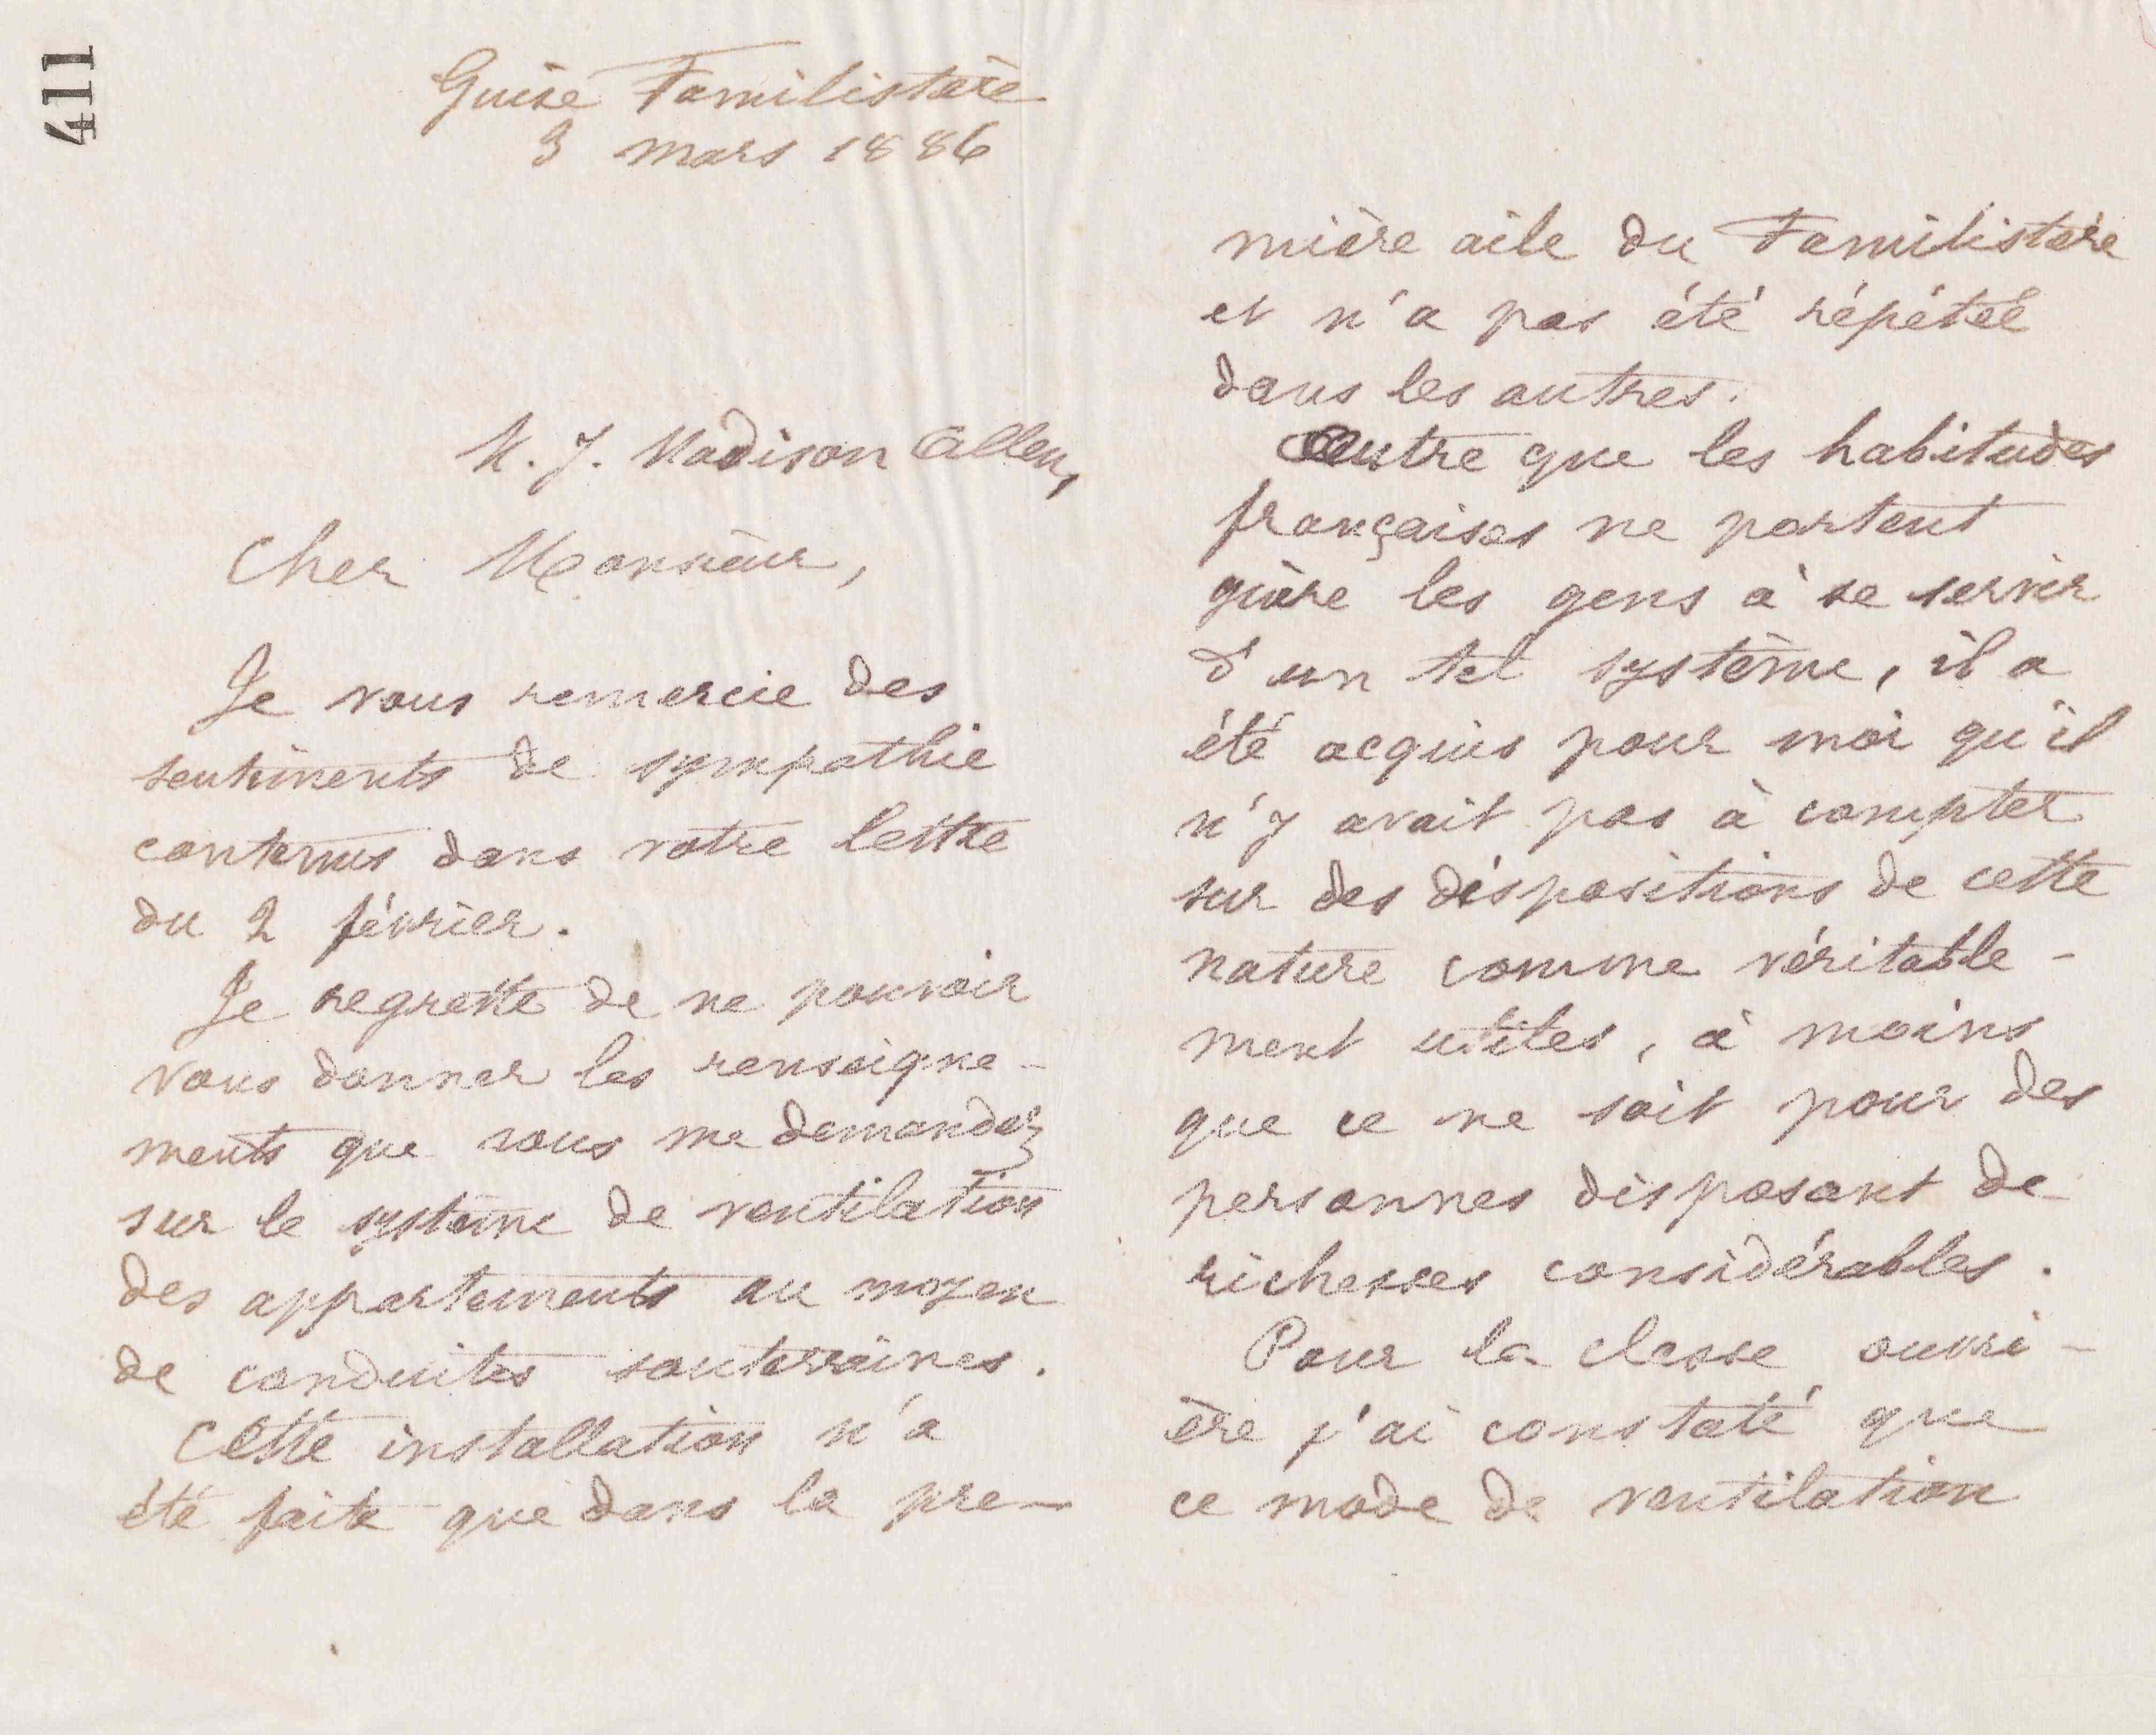 411
Guise Familistère
3 mars 1886
M. J. Madison Allen,
Cher Monsieur,
Je vous remercie des
sentiments de sympathie
contenus dans votre lettre
du 2 février.
Je regrette de ne pouvoir
vous donner les renseigne-
ments que vous me demandez
sur le système de ventilation
des appartements au moyen
de conduites souterraines.
Cette installation n'a
été faite que dans la pre-
mière aile du Familistère
et n'a pas été répétée
dans les autres.
Outre que les habitudes
françaises ne portent
guère les gens à se servir
d'un tel système, il a
été acquis pour moi qu'il
n'y avait pas à compter
sur des dispositions de cette
nature comme véritable-
ment utiles, à moins
que ce ne soit pour des
personnes disposant de
richesses considérables.
Pour la classe ouvri-
ère j'ai constaté que
ce mode de ventilation